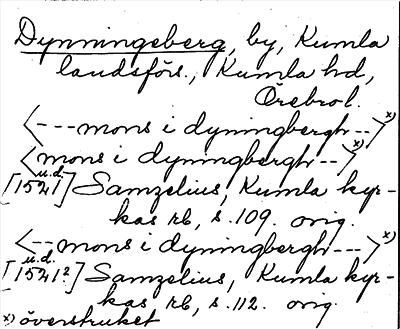 Dynningeberg, by, Kumla
landsförs., Kumla hd,
Örebrol.
<---mons i dyningbergh--> x)
<mons i dyningbergh--> x)
u.d.
[1521] Samzelius, Kumla kyr-
kas rb, s. 109. orig.
<--mons i dyningbergh---> x)
u.d.
[1521?] Samzelius, Kumla kyr-
kas rb, s. 112. orig.
x) överstruket